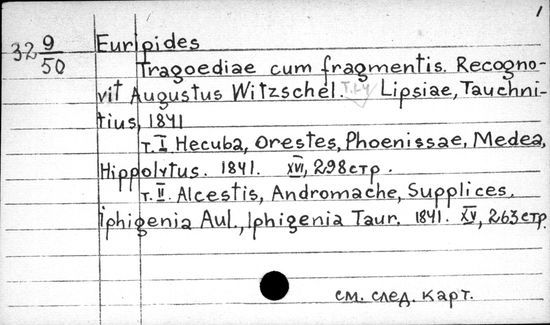 1
32 9/50
Euripides
Tragoediae cum fragmentis. Recogno-
vit Augustus Witzschel. T.I-4 Lipsiae, Tauchni-
tius, 1841
т. I. Hecuba, Orestes, Phoenissae, Medea,
Hippolytus. 1841. XVI, 298 стр.
т. II. Alcestis, Andromache, Supplices,
Iphigenia Aul., Iphigenia Taur. 1841. XV, 263 стр.
см. след. карт.